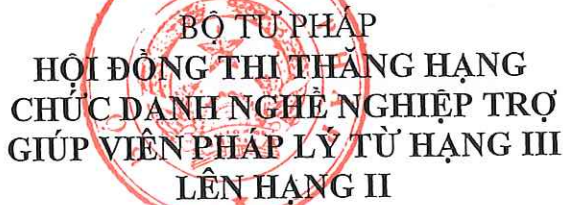 BỘ TƯ PHÁP
HỘI ĐỒNG THI THĂNG HẠNG
CHỨC DANH NGHỀ NGHIỆP TRỢ
GIÚP VIÊN PHÁP LÝ TỪ HẠNG III
LÊN HẠNG II